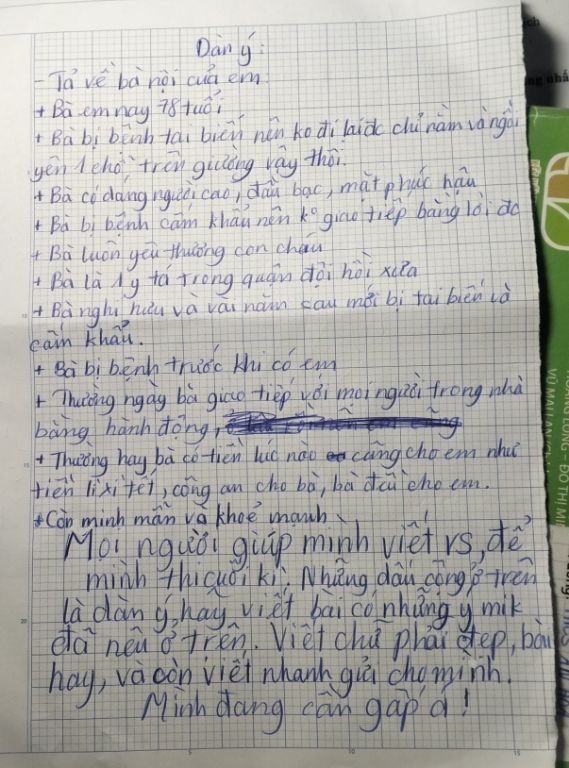 Dàn ý:
- Tả về bà nội của em:
+ Bà em nay 78 tuổi
+ Bà bị bệnh tai biến nên ko đi lại đc chỉ nằm và ngồi
yên 1 chỗ, trên giường vậy thôi.
+ Bà có dáng người cao, đầu bạc, mặt phúc hậu
+ Bà bị bệnh cấm khẩu nên ko giao tiếp bằng lời đc
+ Bà luôn yêu thương con cháu
+ Bà là 1 y tá trong quân đội hồi xưa
+ Bà nghỉ hưu và vài năm sau mới bị tai biến và
cấm khẩu.
+ Bà bị bệnh trước khi có em
+ Thường ngày bà giao tiếp với mọi người trong nhà
bằng hành động,
+ Thường hay bà có tiền lúc nào cũng cho em như
tiền lì xì tết, công an cho bà, bà đều cho em.
+ Còn minh mẫn và khoẻ mạnh
Mọi người giúp mình viết vs, để
mình thi cuối kì. Những dấu cộng ở trên
là dàn ý, hãy viết bài có những ý mik
đã nêu ở trên. Viết chữ phải đẹp, bài
hay, và còn viết nhanh gửi cho mình.
Mình đang cần gấp ạ!